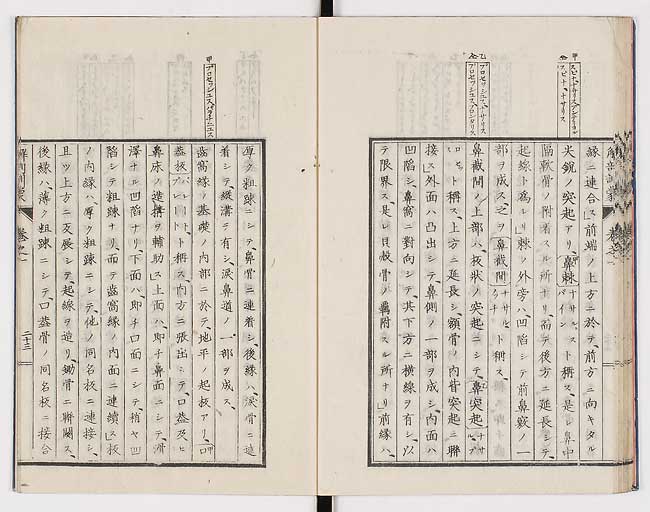 甲
スピナ、ナサリス、アンテリオル
仝
スピナ、ナサリス
乙
プロセッシュス、ナサリス
仝
プロセッシュス、フロンタリス
縁ニ連合」ス前端ノ上方ニ於テ、前方ニ向キタル
尖鋭ノ突起アリ、鼻棘ト称ス、是レ鼻中
隔軟骨ノ附着スル所ナリ、而テ後方ニ延長シテ、
起線ト為レリ」棘ノ外旁ハ、凹陥シテ前鼻竅ノ一
部ヲ成ス、之ヲ鼻截間ト称ス、
鼻截間ノ上部ハ、板状ノ突起ニシテ、鼻突起
ト称ス、上方ニ延長シ、額骨ノ内眥突起ニ聯
接ス」外面ハ凸出シテ、鼻側ノ一部ヲ成シ、内面ハ
凹陥シ、鼻窩ニ對向シテ、其下方ニ横線ヲ有シ、以
テ限界ス、是レ貝殻骨ノ附スル所ナリ」前縁ハ、
甲
プロセッシュス、パラチニュス
厚ク粗踈ニシテ、鼻骨ニ連着シ、後縁ハ、涙骨ニ連
着シテ、縦溝ヲ有シ、涙鼻道ノ一部ヲ成ス、
齒窩縁ノ基礎ノ内部ニ於テ、地平ノ起板アリ、口
蓋板ト称ス、内方ニ張出シテ、口蓋及ヒ
鼻床ノ造搆ヲ輔助」ス上面ハ、即チ鼻面ニシテ、滑
澤ナレ凹陥ナリ、下面ハ、即チ口面ニシテ、稍ヤ凹
陥シテ粗踈ナリ、而テ齒窩縁ノ内面ニ連續ス」板
ノ内縁ハ、厚ク粗踈ニシテ、他ノ同名板ニ連接シ、
且ツ上方ニ反展シテ、起線ヲ造リ、鋤骨ニ聯關ス、
後縁ハ、薄ク粗踈ニシテ、口蓋骨ノ同名板ニ接合
二十三